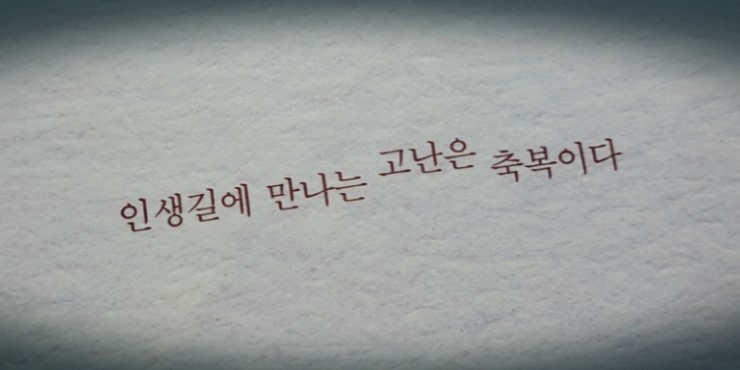 인생길에 만나는 고난은 축복이다